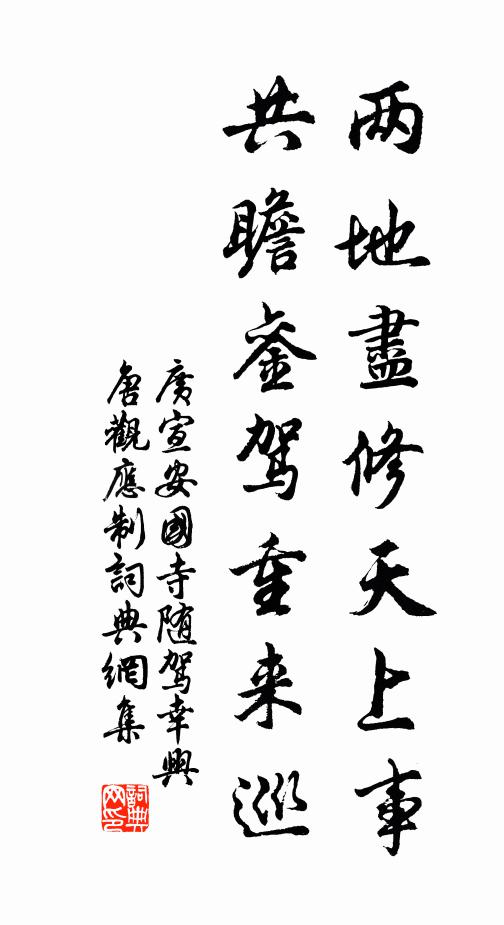 两地盡修天上事
共瞻銮駕重来巡
廣宣安國寺随駕幸興
唐觀應制詞典網集
詞典
网印